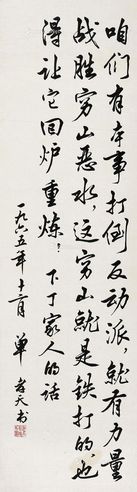 咱们有本事打倒反动派，就有力量
战胜穷山恶水，这穷山就是铁打的也
得让它回炉重炼！ 下丁家人的话
一九六五年十二月 单孝天书